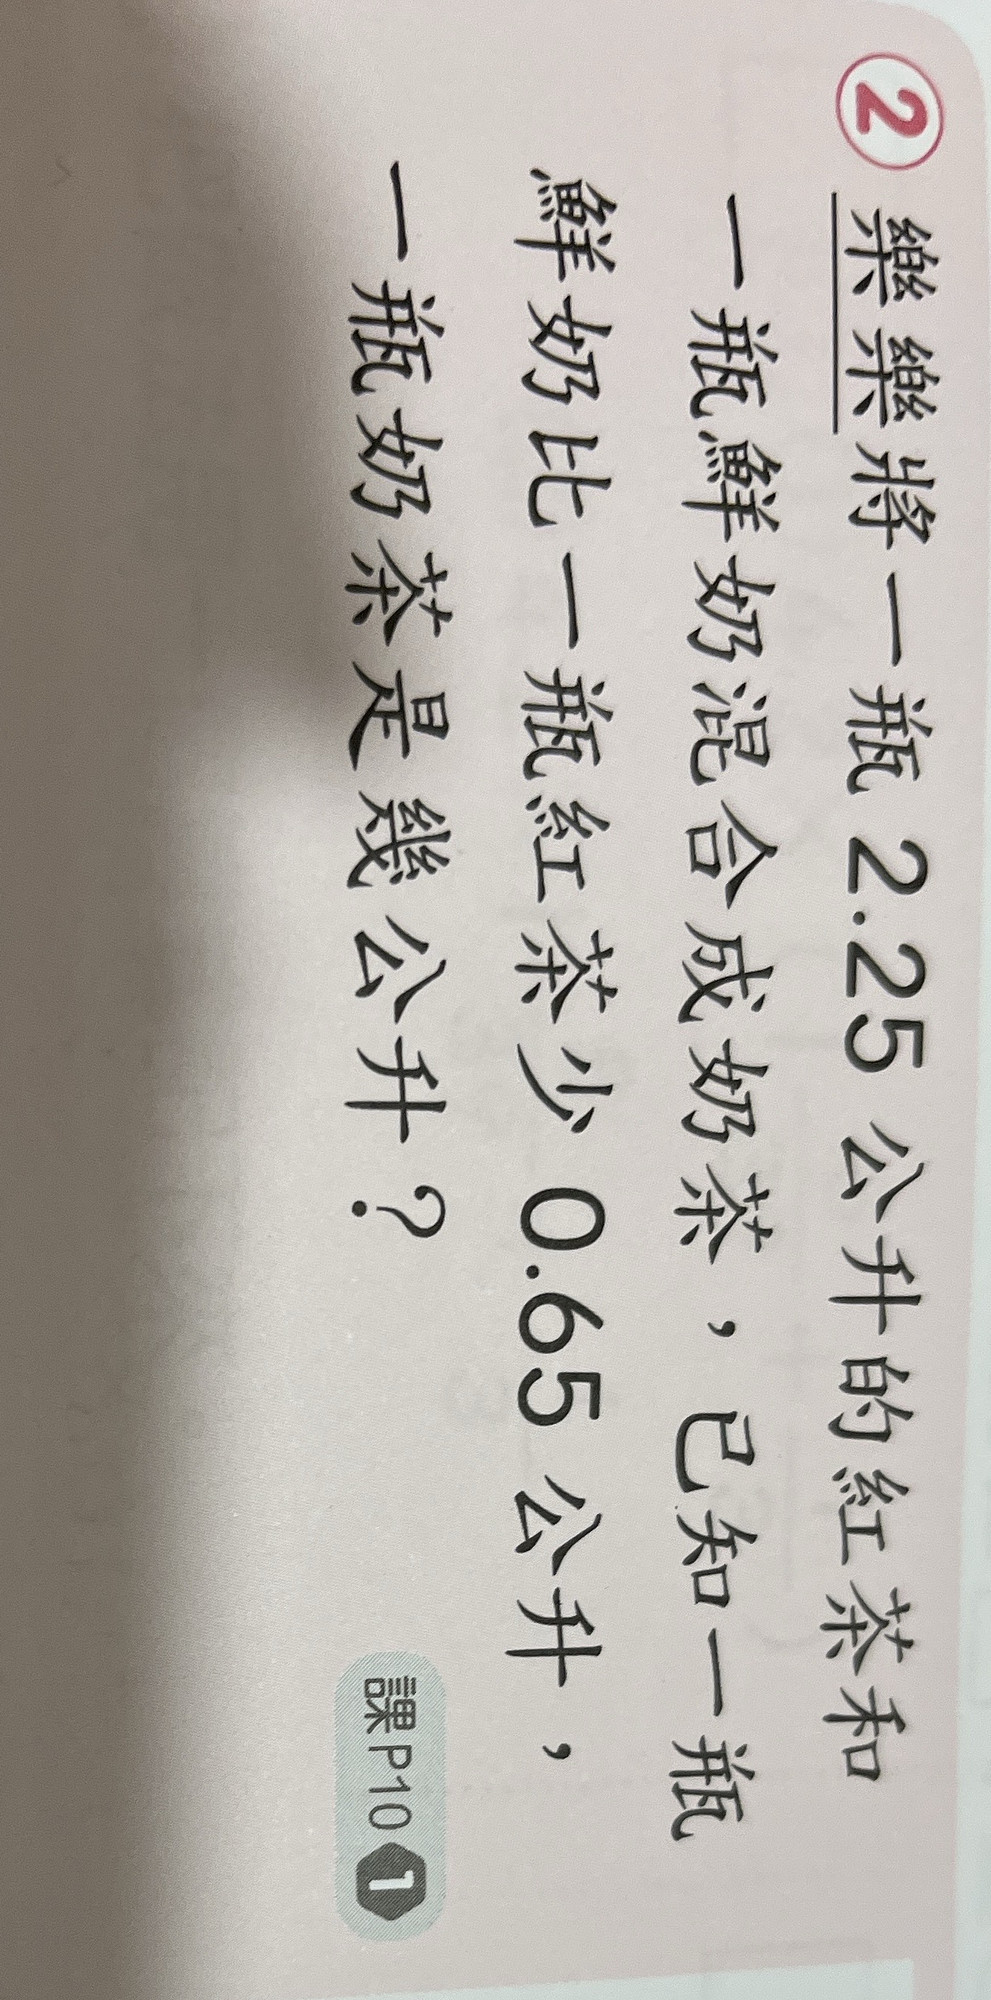 ② 樂樂將一瓶 2.25 公升的紅茶和
一瓶鮮奶混合成奶茶，已知一瓶
鮮奶比一瓶紅茶少 0.65 公升，
一瓶奶茶是幾公升？
課P10 1